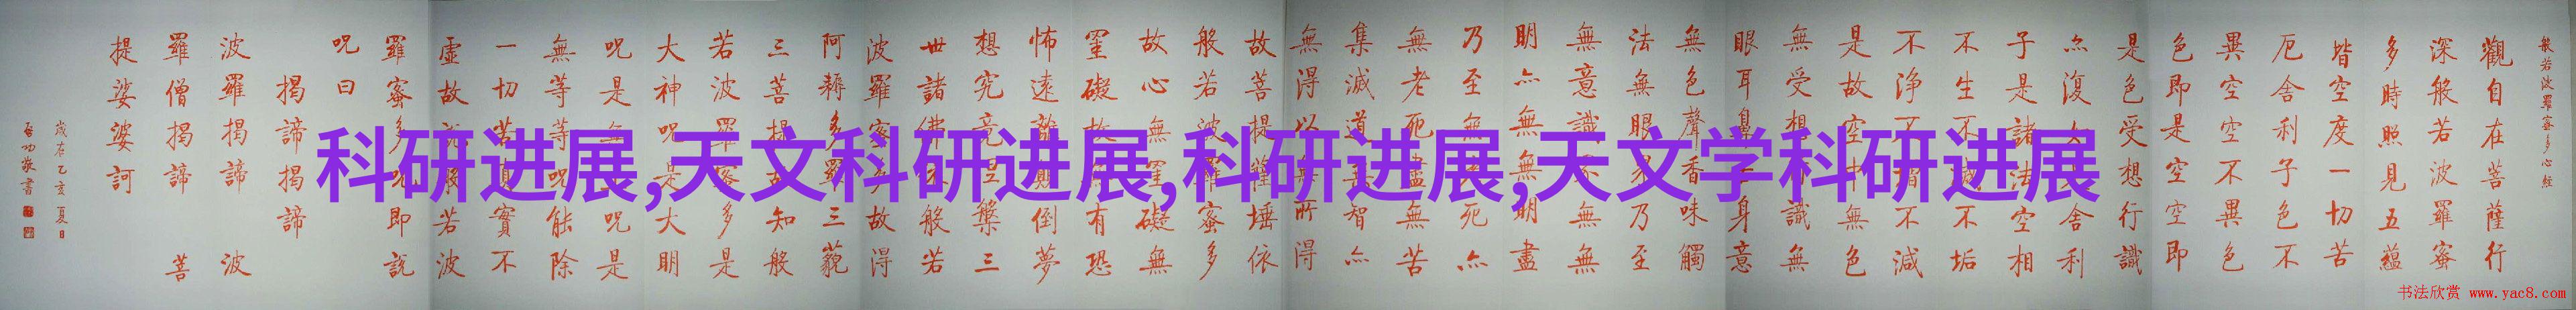 科研进展,天文科研进展,科研进展,天文学科研进展
般若波羅蜜多心經
觀自在菩薩行
深般若波羅蜜
多時照見五蘊
皆空度一切苦
厄舍利子色不
異空空不異色
色即是空空即
是色受想行識
亦復如是舍利
子是諸法空相
不生不滅不垢
不浄不增不減
是故空中無色
無受想行識無
眼耳鼻舌身意
無色聲香味觸
法無眼界乃至
無意識界無無
明亦無無明盡
乃至無老死亦
無老死盡無苦
集滅道無智亦
無得以無所得
故菩提薩埵依
般若波羅蜜多
故心無罣礙無
罣礙故無有恐
怖遠離顛倒夢
想究竟涅槃三
世諸佛依般若
波羅蜜多故得
阿耨多羅三藐
三菩提故知般
若波羅蜜多是
大神呪是大明
呪是無上呪是
無等等呪能除
一切苦真實不
虛故說般若波
羅蜜多呪即說
呪曰
揭諦揭諦
波羅揭諦 波
羅僧揭諦 菩
提娑婆訶
歲在乙亥夏日
啓功敬書
书法欣赏 www.yac8.com